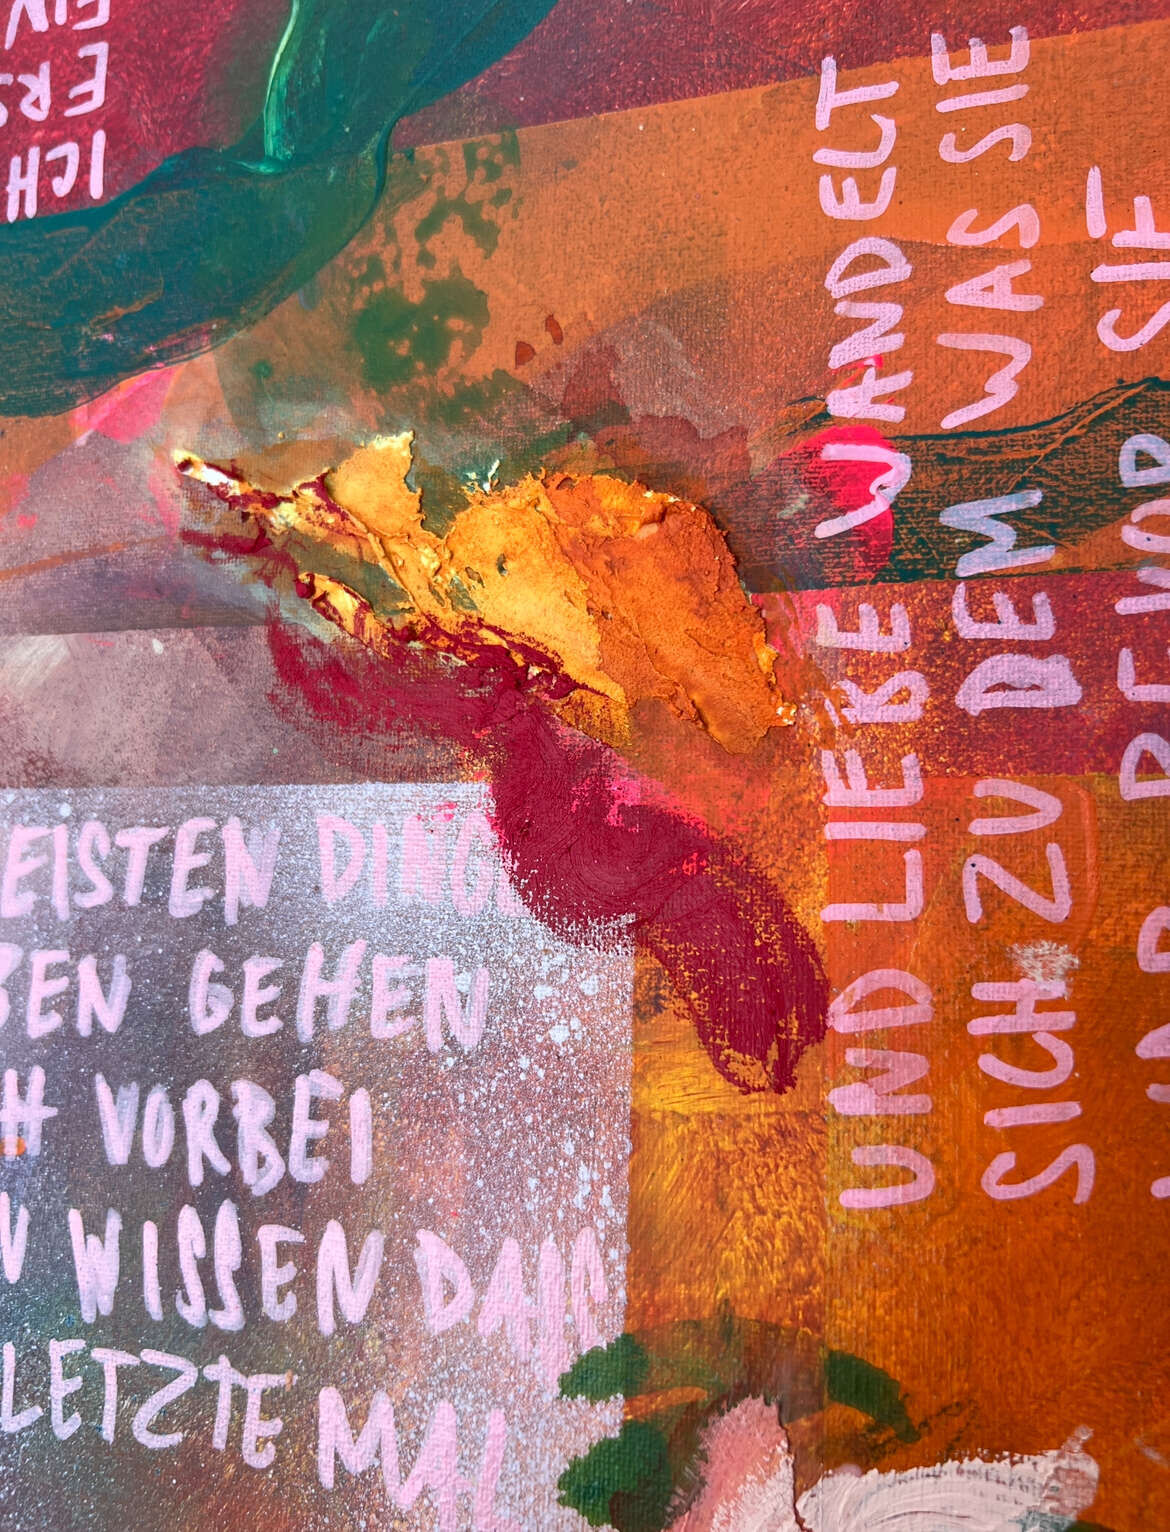 ICH
EISTEN DING
BEN GEHEN
H VORBEI
N WISSEN
LETZTE MAL
UND LIEBE WANDELT
SICH ZU DEM WAS SIE
WAR BEVOR SIE